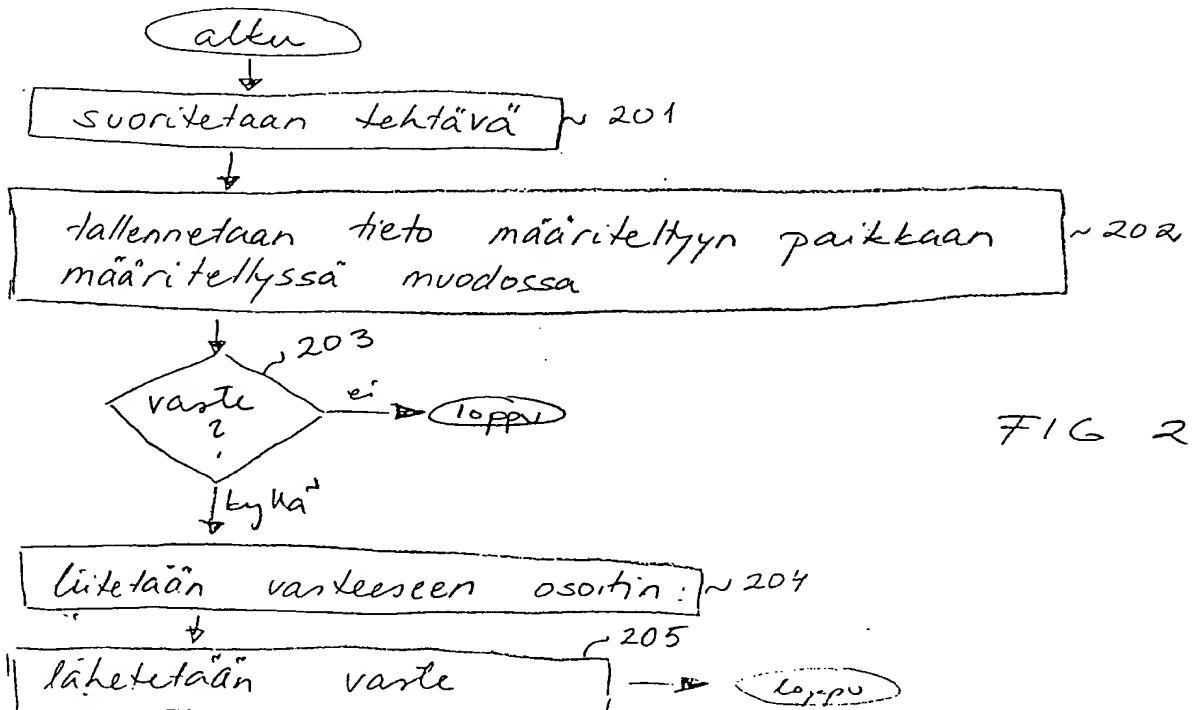 alku
suoritetaan tehtävä ~ 201
tallennetaan tieto määriteltyyn paikkaan ~ 202
määritellyssä muodossa
203
vaste
?
ei
loppu
FIG 2
kyllä
liitetään vasteeseen osoitin ~ 204
205
lähetetään vaste
loppu